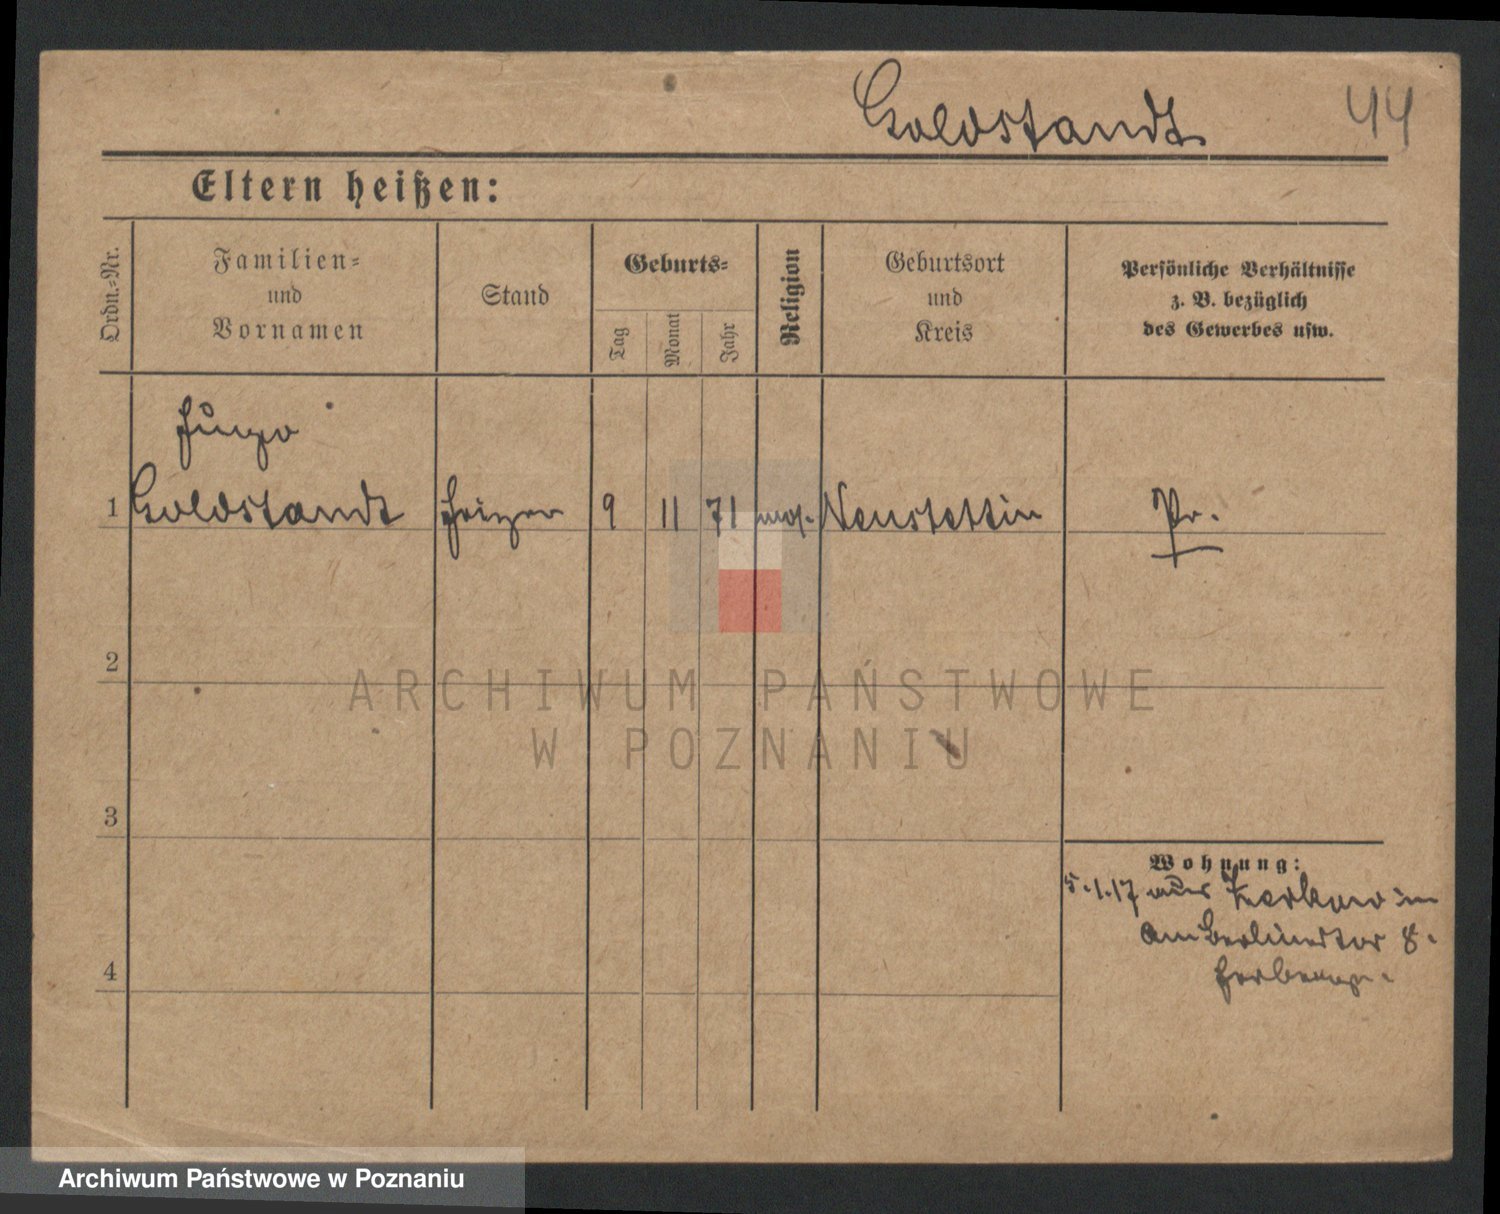 Goldstandt 44
Eltern heißen:
Ordn.-Nr.
Familien-
und
Vornamen
Stand
Geburts-
Tag
Monat
Jahr
Religion
Geburtsort
und
Kreis
Persönliche Verhältnisse
z. B. bezüglich
des Gewerbes usw.
Hugo
1 Goldstandt Heizer 9 11 71 mos. Neustettin Pr.
2
ARCHIWUM PAŃSTWOWE
W POZNANIU
3
Wohnung:
5.1.17 aus Zerkow in
Am Berlinertor 8.
4
Herberge.
Archiwum Państwowe w Poznaniu